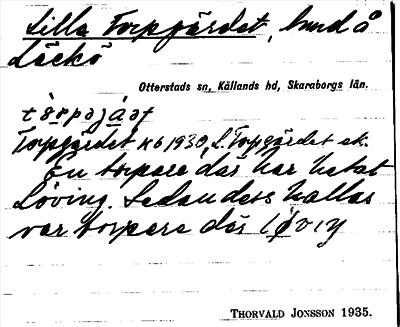 Lilla Torpgärdet, hund å
Läckö
Otterstads sn, Kållands hd, Skaraborgs län.
Torpgärdet kb 1930, L. Torpgärdet ek.
En torpare där har hetat
Löving. Sedan dess kallas
var torpare där
THORVALD JONSSON 1935.